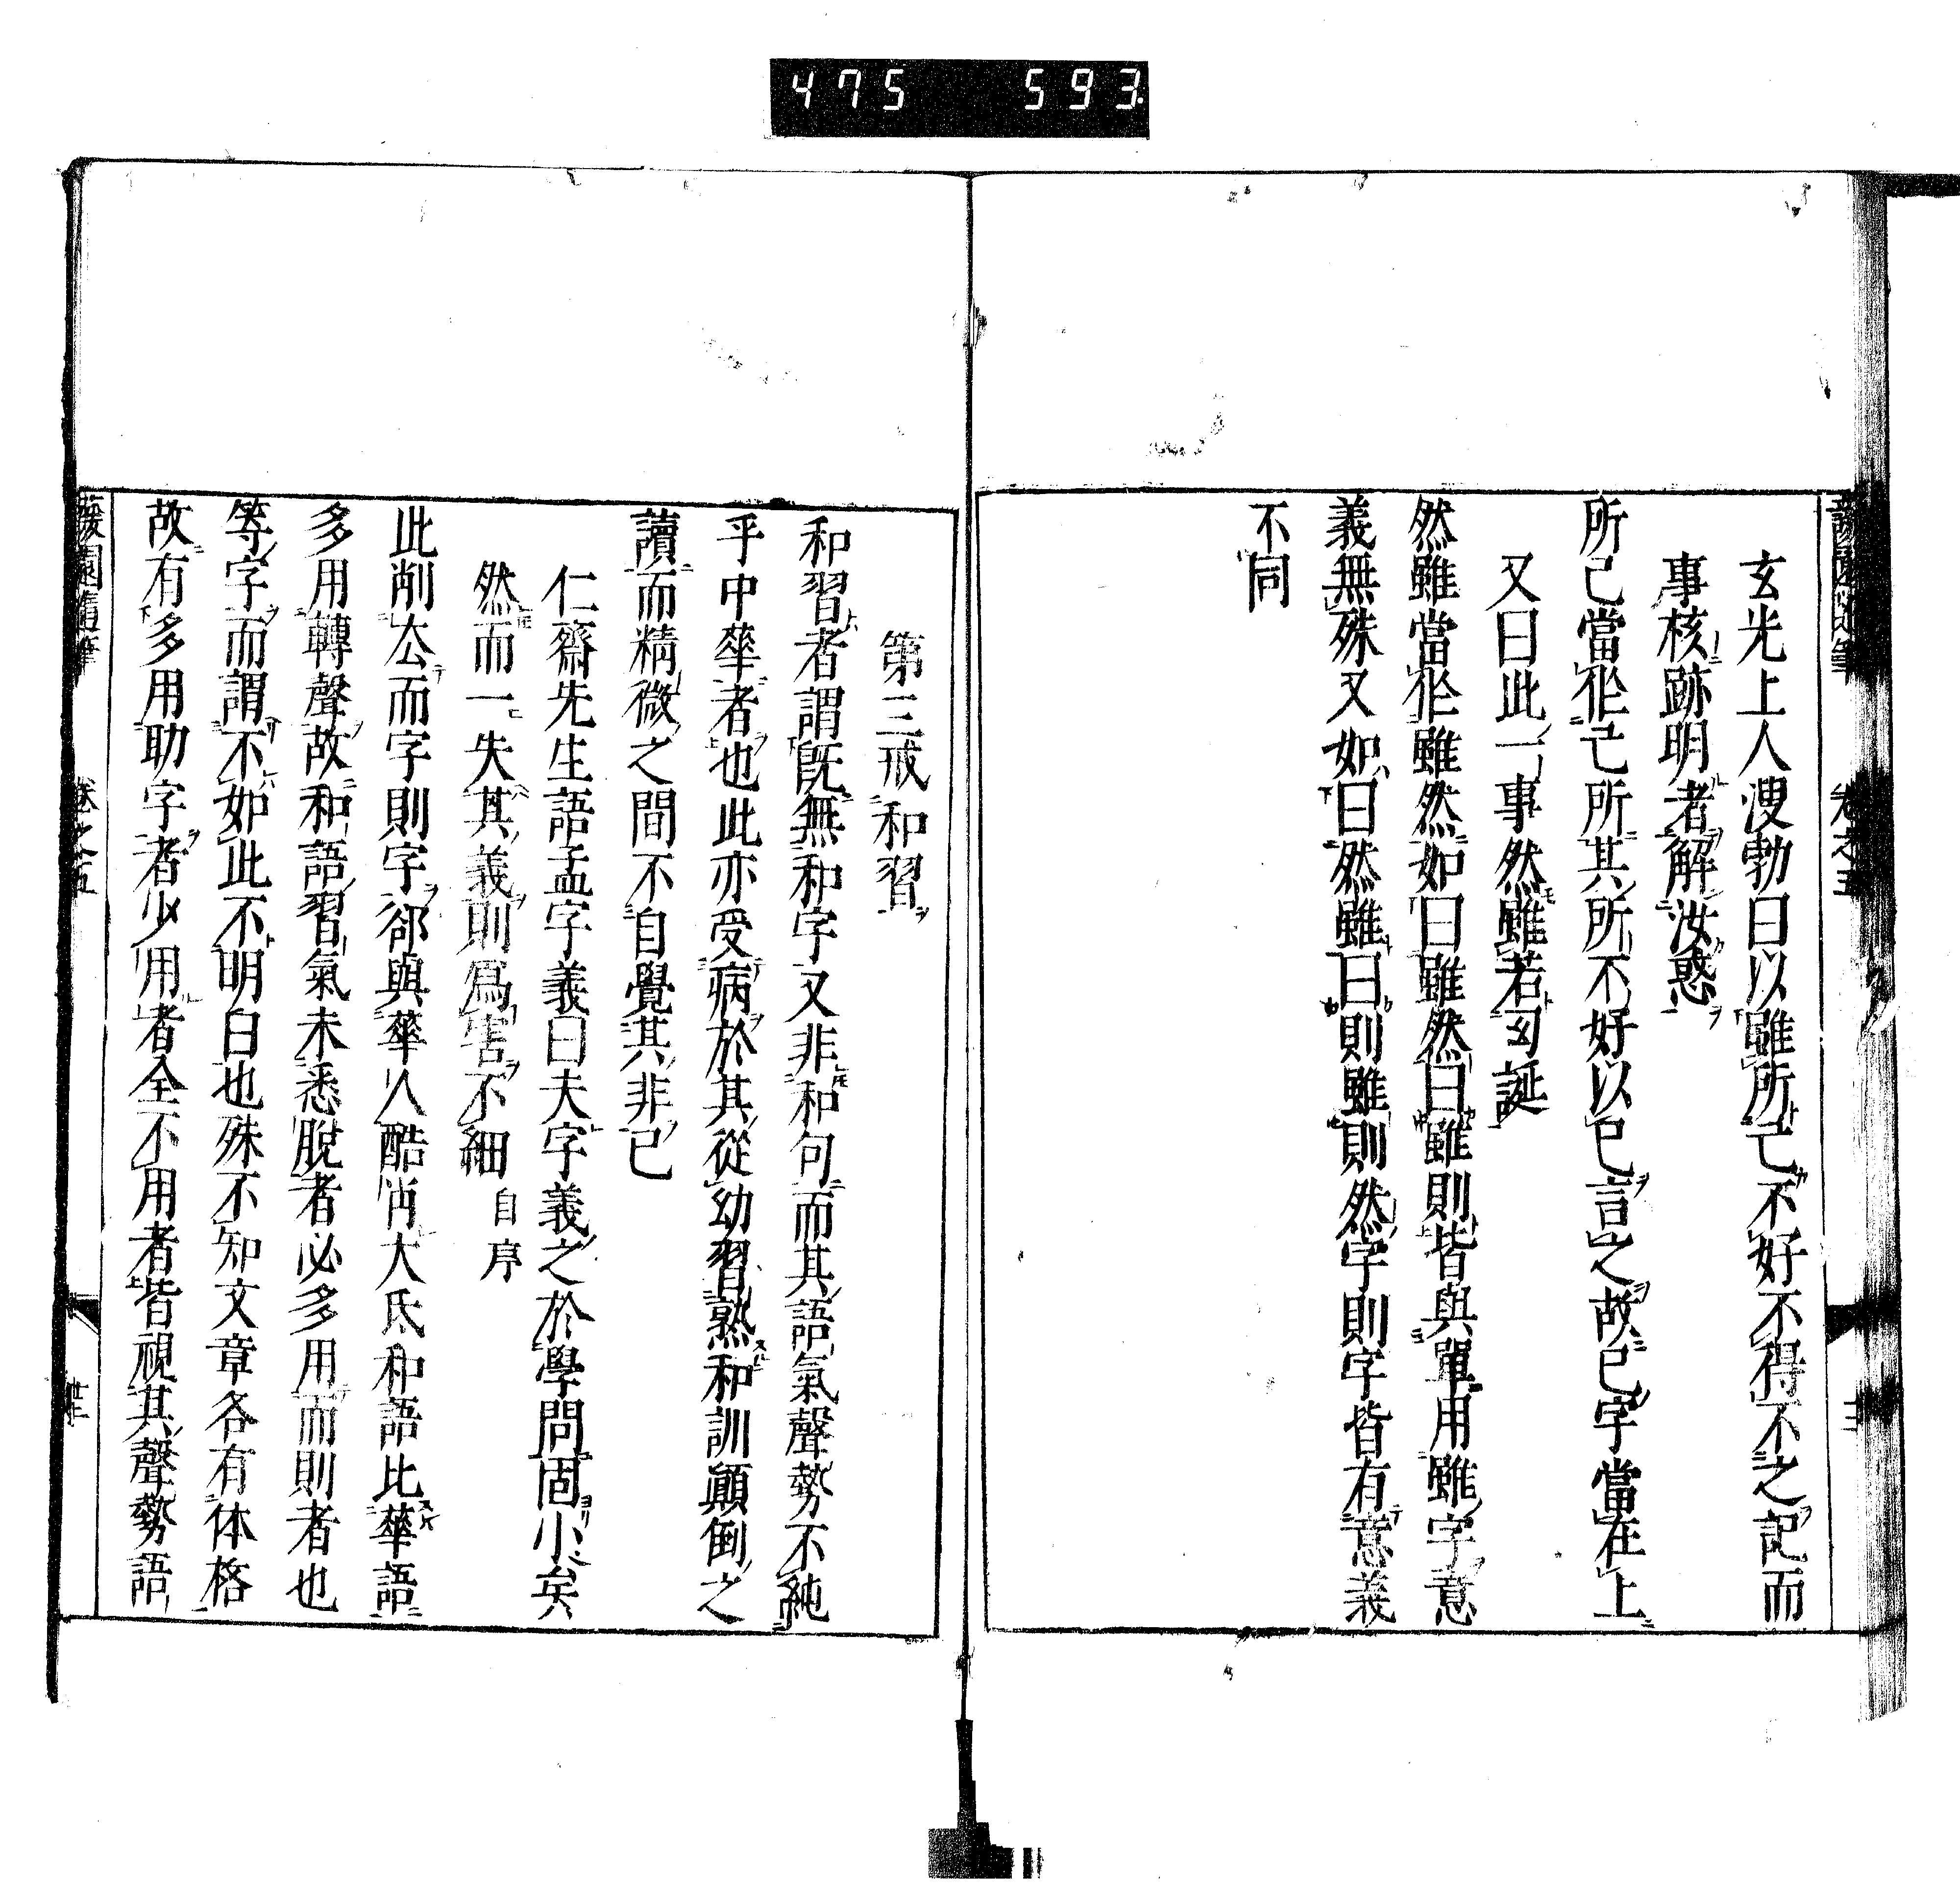 475 593
玄光上人溲勃曰以雖所已不好不得不之記而
事核跡明者解汝惑
所已當作己所其所不好以已言之故已字當在上
又曰此一事然雖若匃誕
然雖當作雖然如曰雖然曰雖則皆與單用雖字意
義無殊又如曰然雖曰則雖則然字則字皆有意義
不同
蘐園隨筆 卷之五
第三戒和習
和習者謂既無和字又非和句而其語氣聲勢不純
乎中華者也此亦受病於其從幼習熟和訓顛倒之
讀而精微之間不自覺其非已
仁齋先生語孟字義曰夫字義之於學問固小矣
然而一失其義則爲害不細 自序
此削厺而字則字郤與華人酷肖大氐和語比華語
多用轉聲故和語習氣未悉脫者必多用而則者也
等字而謂不如此不明白也殊不知文章各有体格
故有多用助字者少用者全不用者皆視其聲勢語
蘐園隨筆 卷之五